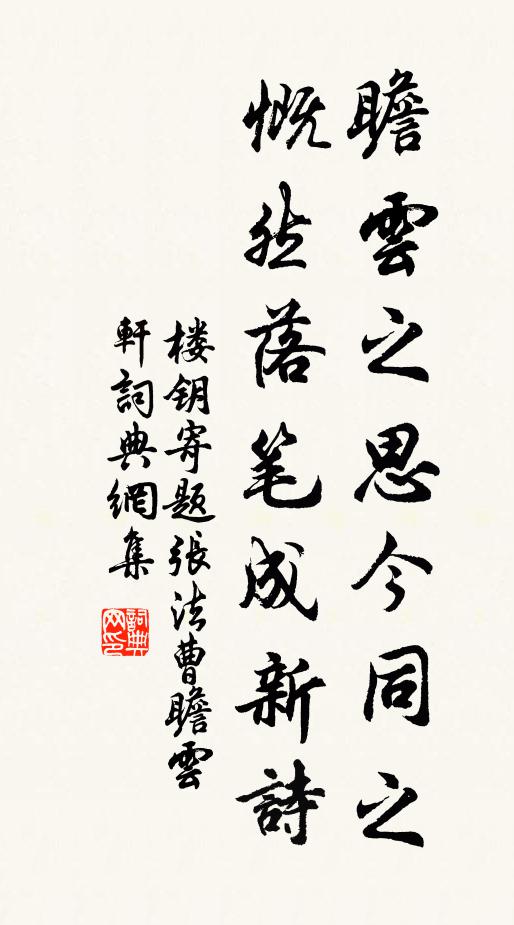 瞻雲之思今同之
慨然落笔成新詩
楼钥寄题張法曹瞻雲
軒詞典網集
詞典
网印